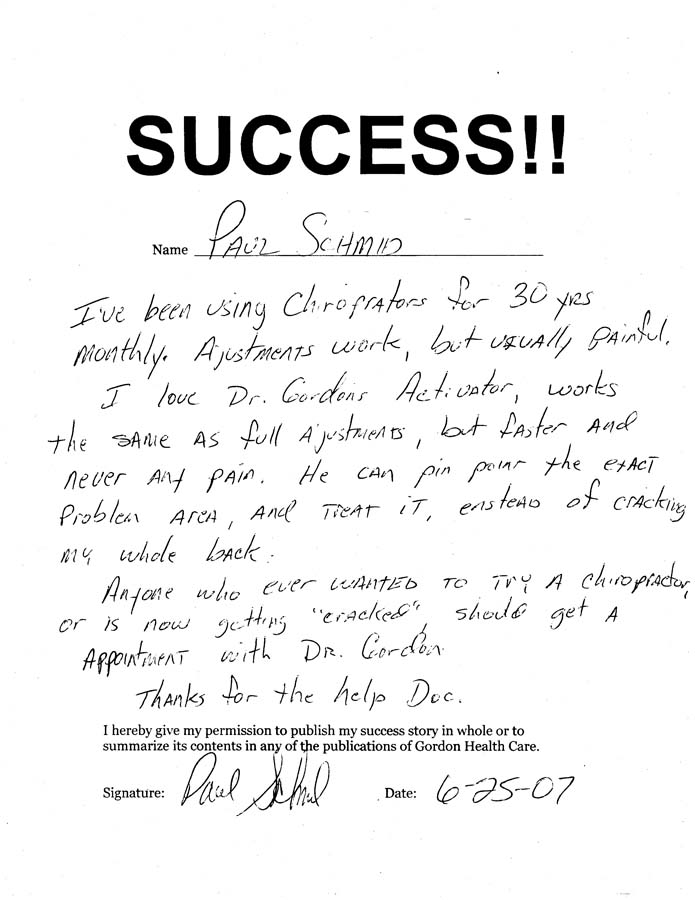 SUCCESS!!
Name Paul Schmid
I've been using Chiroprators for 30 yrs
Monthly. Ajustments work, but usually Painful.
I love Dr. Gordons Activator, works
the same as full Ajustments, but faster and
never any pain. He can pin point the exact
Problem area, and treat it, enstead of cracking
my whole back.
Anyone who ever wanted to try a Chiropractor,
or is now getting "cracked", should get a
Appointment with Dr. Gordon
Thanks for the help Doc.
I hereby give my permission to publish my success story in whole or to
summarize its contents in any of the publications of Gordon Health Care.
Signature: Paul Schmid Date: 6-25-07